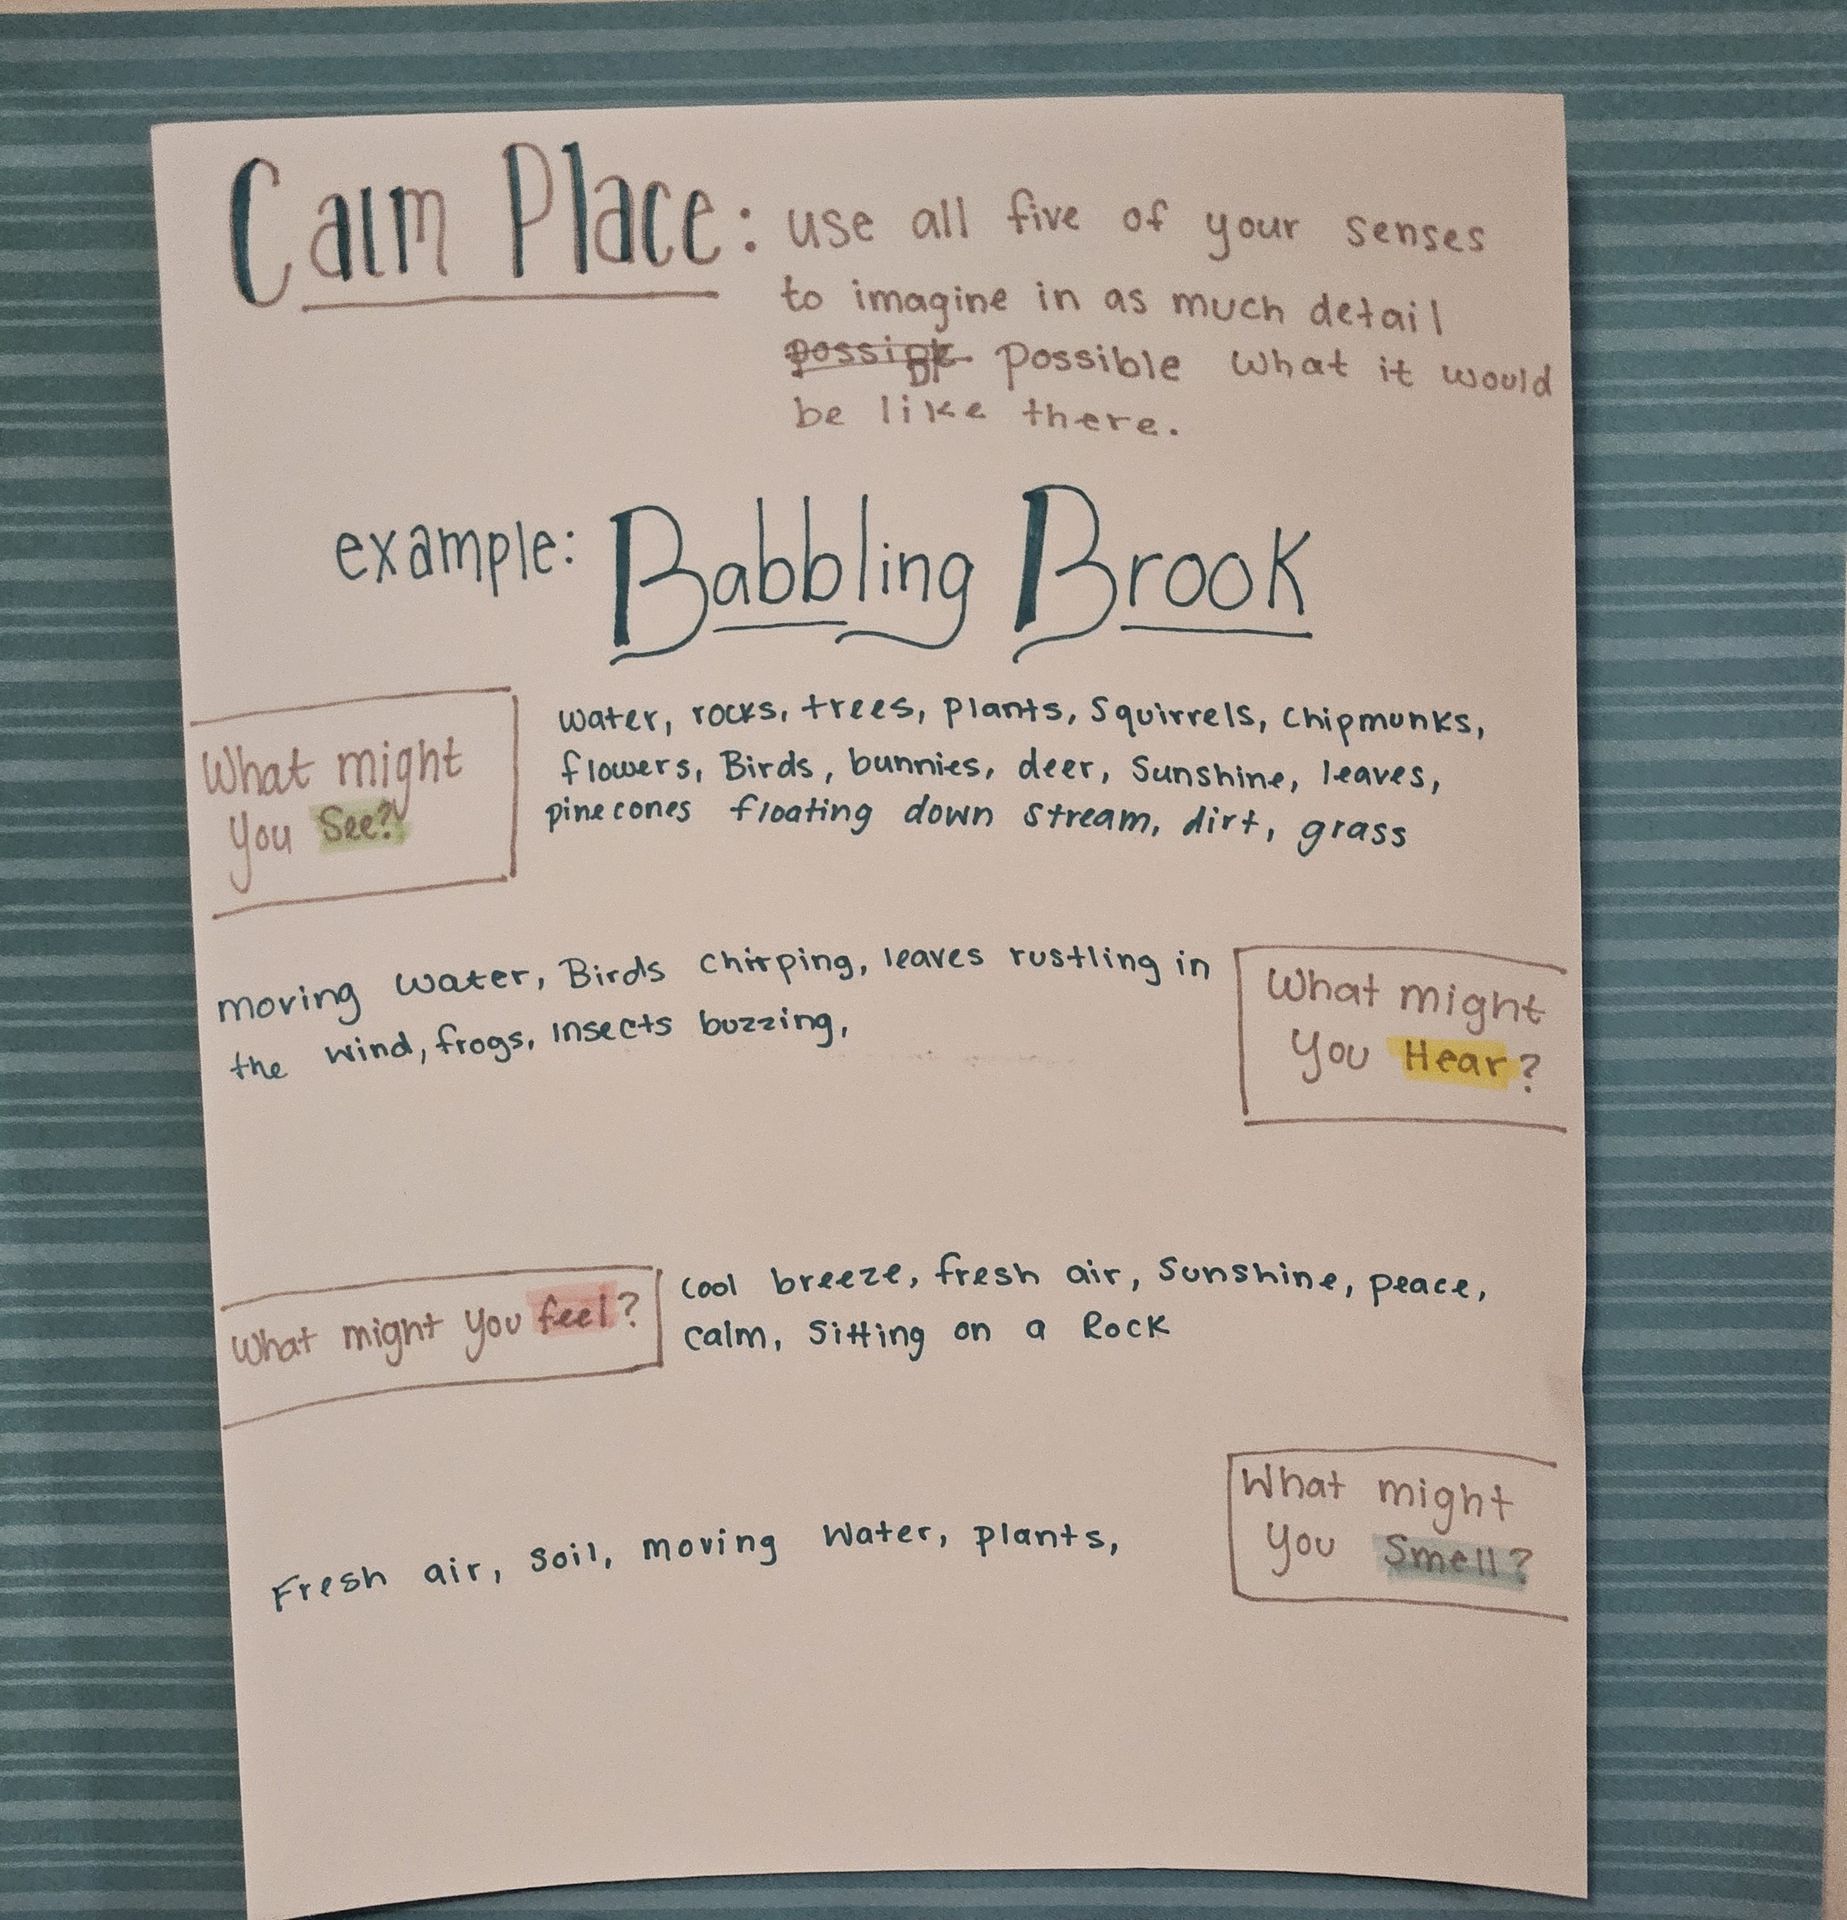 Calm Place: use all five of your senses
to imagine in as much detail
possible what it would
be like there.
example: Babbling Brook
What might
you See?
water, rocks, trees, plants, Squirrels, chipmunks,
flowers, Birds, bunnies, deer, Sunshine, leaves,
pinecones floating down stream, dirt, grass
moving water, Birds chirping, leaves rustling in
the wind, frogs, insects buzzing,
What might
you Hear?
What might you feel?
cool breeze, fresh air, Sunshine, peace,
calm, Sitting on a Rock
What might
you Smell?
Fresh air, Soil, moving Water, plants,